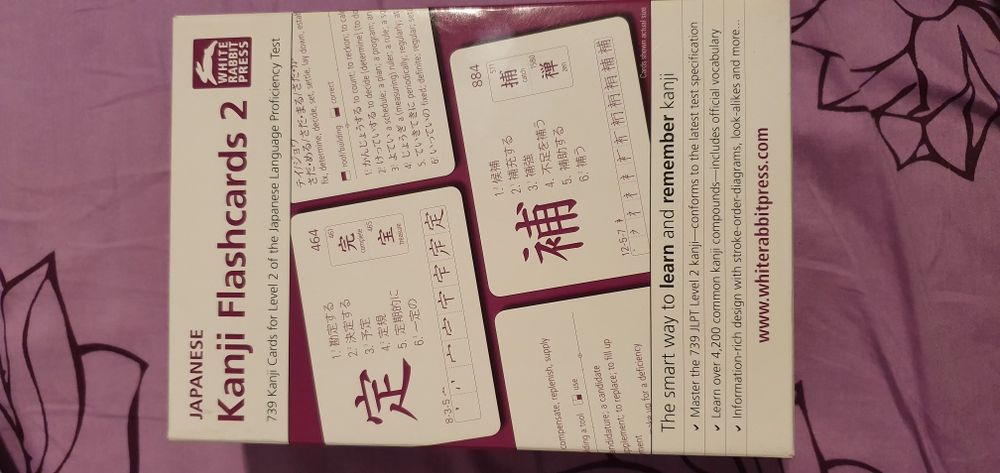 JAPANESE
Kanji Flashcards 2
WHITE
RABBIT
PRESS
739 Kanji Cards for Level 2 of the Japanese Language Proficiency Test
464
定
1. 勘定する
2. 決定する
3. 予定
4. 定規
5. 定期的に
6. 一定の
461
完
complete
465
宝
treasure
8-3-5
テイ/ジョウ
さだ・める/さだ・まる/さだ・か
fix, determine, decide, set, settle, lay down,
roof/building
correct
1. かんじょうする to count; to reckon; to
2. けっていする to decide (determine) (to
3. よてい a schedule; a plan; a program;
4. じょうぎ a (measuring) ruler; a rule;
5. ていきてきに periodically; regularly;
6. いっていの fixed; definite; regular;
compensate, replenish, supply
use
a candidate
to replace; to fill up
up for a deficiency
884
補
1. 候補
2. 補充する
3. 補強
4. 不足を補う
5. 補助する
6. 補う
511
捕
catch
禅
zen
12-5-7
Cards shown actual size
The smart way to learn and remember kanji
✓ Master the 739 JLPT Level 2 kanji—conforms to the latest test specification
✓ Learn over 4,200 common kanji compounds—includes official vocabulary
✓ Information-rich design with stroke-order-diagrams, look-alikes and more...
www.whiterabbitpress.com